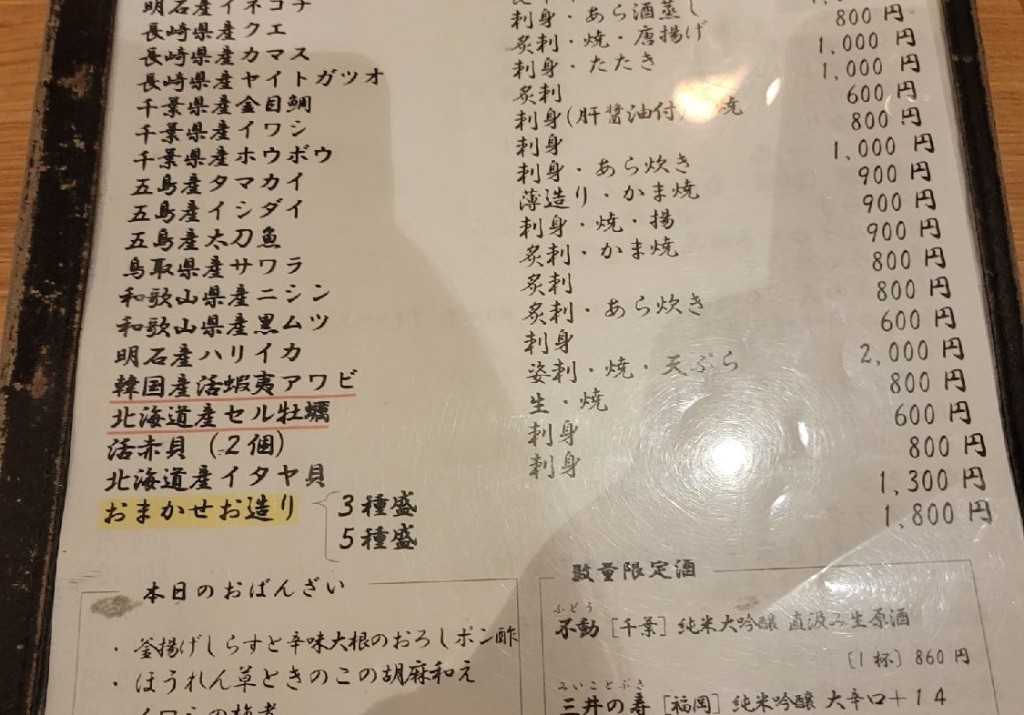 明石産イネコチ
長崎県産クエ 刺身・あら酒蒸し
長崎県産カマス 炙刺・焼・唐揚げ 800円
長崎県産ヤイトガツオ 刺身・たたき 1,000円
千葉県産金目鯛 炙刺 1,000円
千葉県産イワシ 刺身(肝醤油付) 焼 600円
千葉県産ホウボウ 刺身 800円
五島産タマカイ 刺身・あら炊き 1,000円
五島産イシダイ 薄造り・かま焼 900円
五島産太刀魚 刺身・焼・揚 900円
鳥取県産サワラ 炙刺・かま焼 900円
和歌山県産ニシン 炙刺 800円
和歌山県産黒ムツ 炙刺・あら炊き 800円
明石産ハリイカ 刺身 600円
韓国産活蝦夷アワビ 姿刺・焼・天ぷら 2,000円
北海道産セル牡蠣 生・焼 800円
活赤貝(2個) 刺身 600円
北海道産イタヤ貝 刺身 800円
おまかせお造り 3種盛 1,300円
5種盛 1,800円
本日のおばんざい
・釜揚げしらすと辛味大根のおろしポン酢
・ほうれん草ときのこの胡麻和え
数量限定酒
ふどう
不動［千葉］純米大吟醸 直汲み生原酒
〔1杯〕860円
みいことぶき
三井の寿［福岡］純米吟醸 大辛口＋14